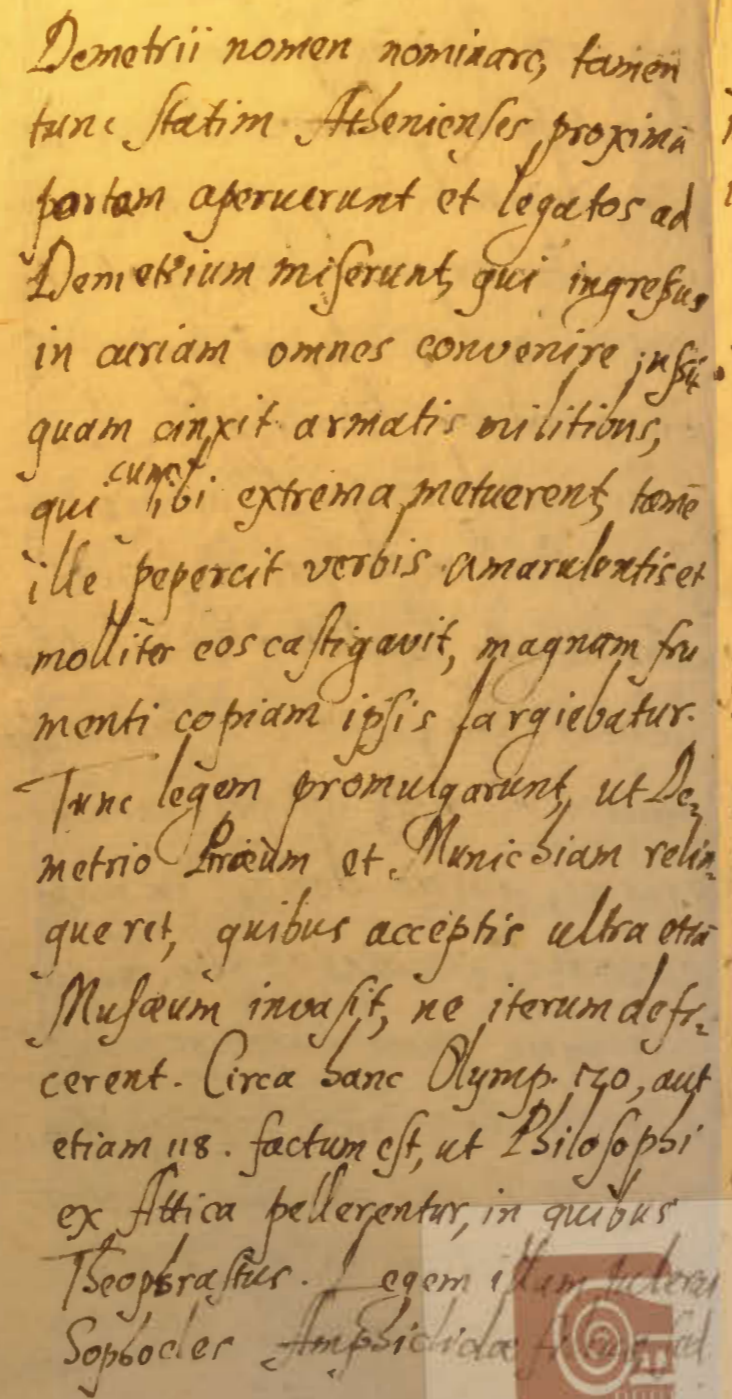 Demetrii nomen nominare, tamen
tunc statim Athenienses proximã
portam aperuerunt et legatos ad
Demetrium miserunt, qui ingressus
in curiam omnes convenire jussit.
quam cinxit armatis militibus,
qui cum ibi extrema metuerent, tamē
ille pepercit verbis amarulentis et
molliter eos castigavit, magnam fru
menti copiam ipsis largiebatur.
Tunc legem promulgarunt, ut De-
metrio Piræum et Munichiam relin-
queret, quibus acceptis ultra etiã
Musæum invasit, ne iterum defi-
cerent. Circa hanc Olymp. 120, aut
etiam 118. factum est, ut Philosophi
ex Attica pellerentur, in quibus
Theophrastus. Legem illam tulerat
Sophocles Amphiclidæ filius, sed